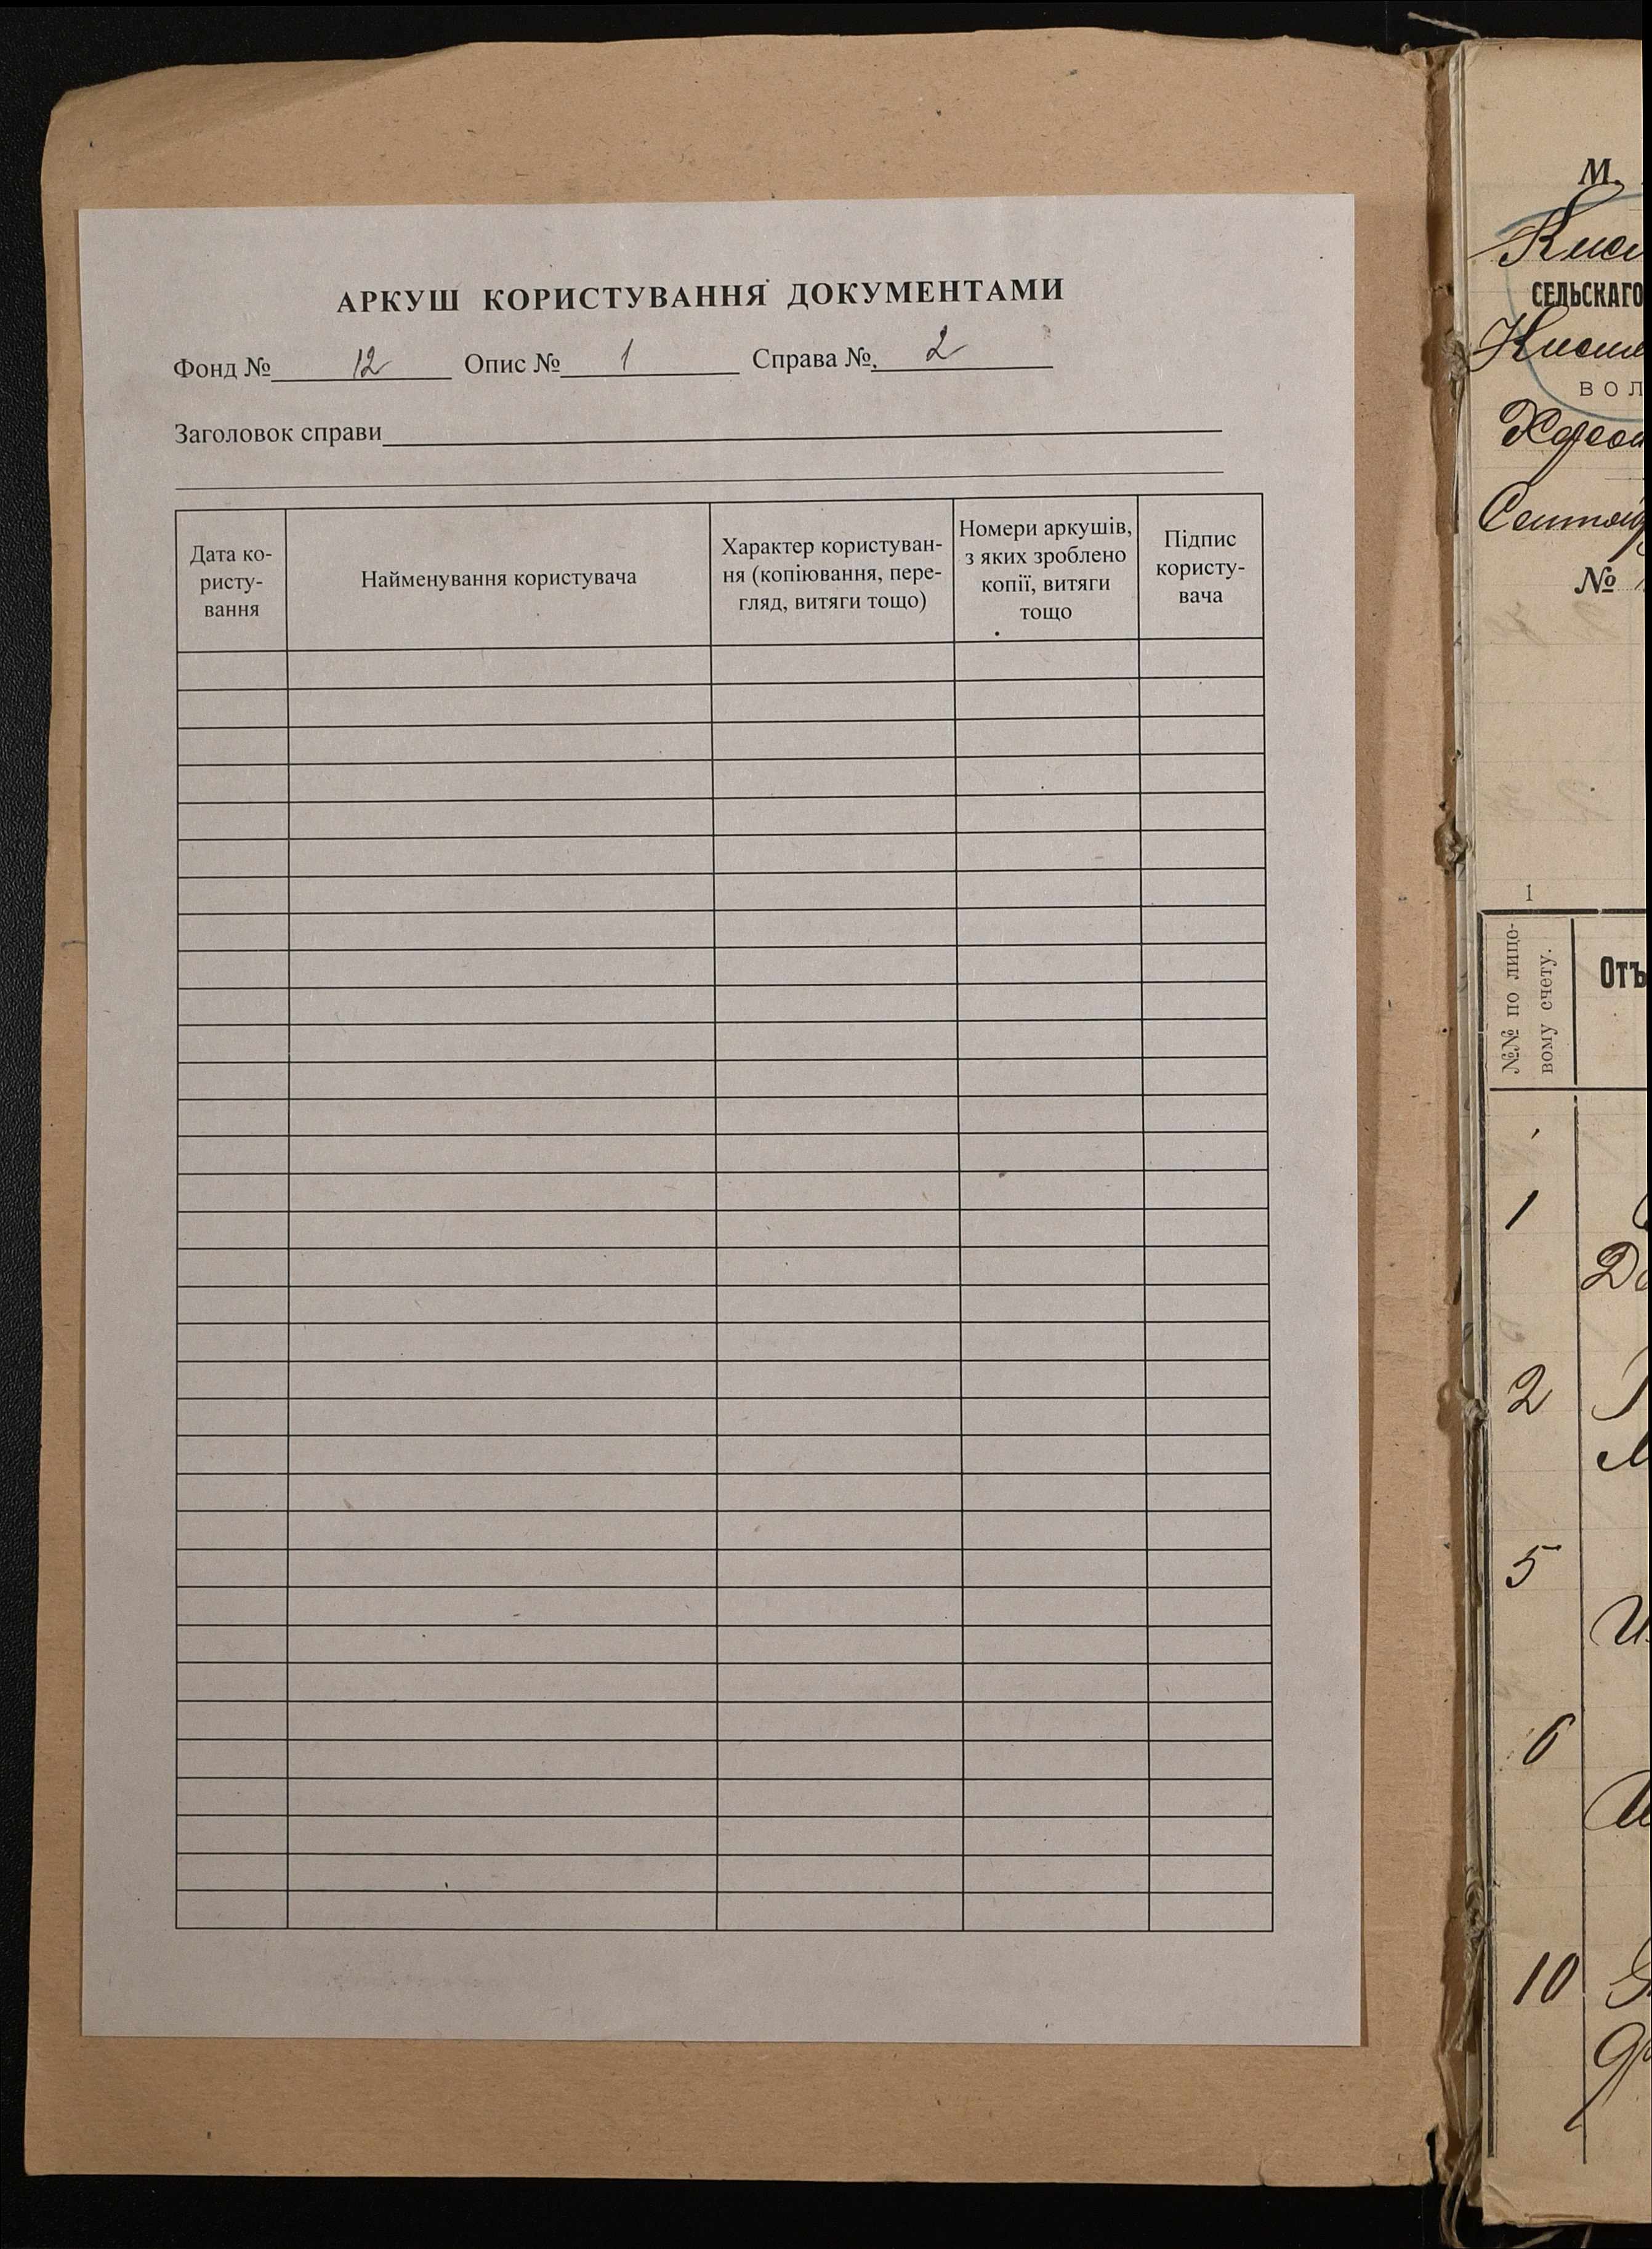 АРКУШ КОРИСТУВАННЯ ДОКУМЕНТАМИ
Фонд № 12 Опис № 1 Справа № 2
Заголовок справи
Дата ко-
ристу-
вання
Найменування користувача
Характер користуван-
ня (копіювання, пере-
гляд, витяги тощо)
Номери аркушів,
з яких зроблено
копії, витяги
тощо
Підпис
користу-
вача
М.
СЕЛЬСКАГО
ВОЛ
№
1
№№ по лицо-
вому счету.
Отъ
1
2
5
6
10